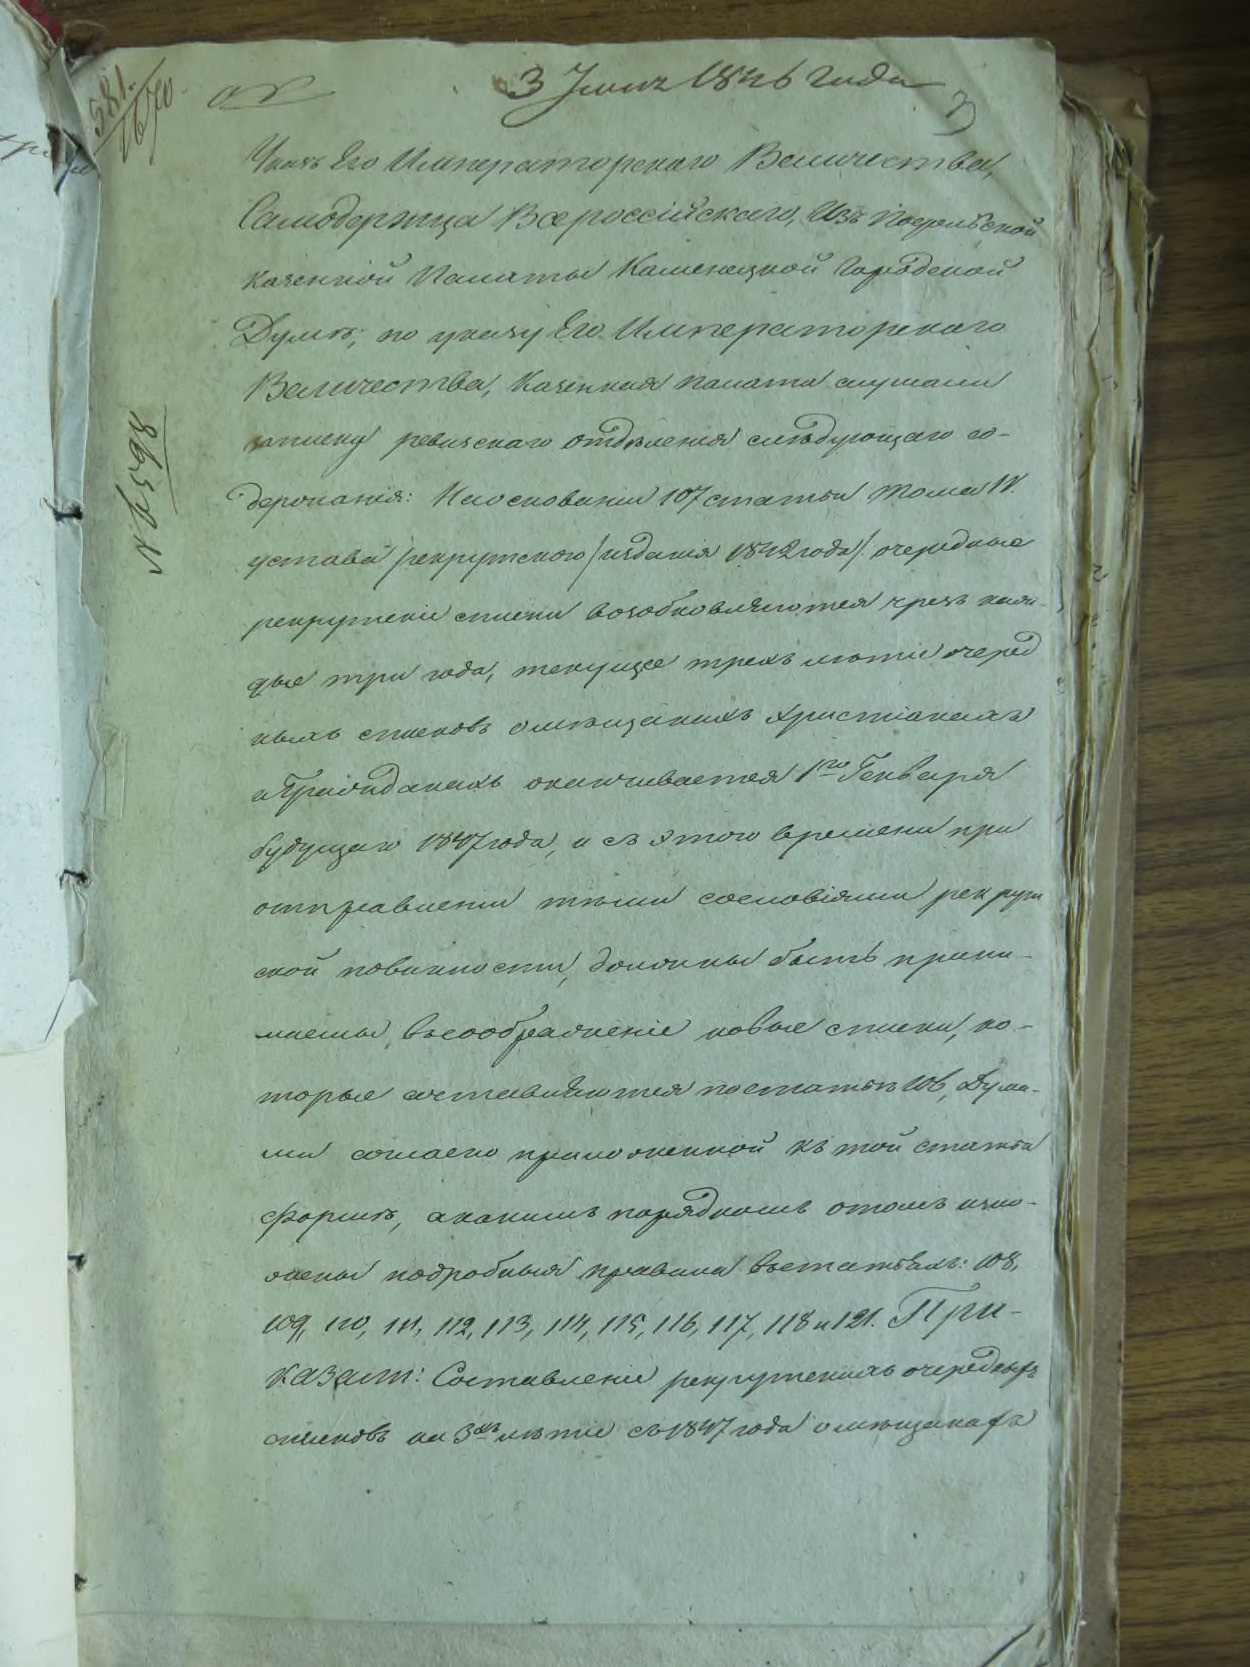 581.
1670
3 Іюня 1846 года
3
Указъ Его Императорскаго Величества,
Самодержца Всероссійскаго, Изъ Подольской
казенной Палаты Каменецкой Городской
Думѣ; по указу Его Императорскаго
Величества, Казенная палата слушали
записку ревизскаго отдѣленія слѣдующаго со-
держанія: На основаніи 107 статьи Тома IV.
устава рекрутского /изданія 1842 года/ очередные
рекрутскіе списки возобновляются чрезъ каж-
дые три года, текущее трехъ лѣтіе очеред
ныхъ списковъ о мѣщанахъ христіанахъ
и Гражданахъ оканчивается 1го Генваря
будущаго 1847 года, и съ этого времени при
отправленіи тѣми сословіями рекрут
ской повинности, должны быть прини-
маемы въ соображеніе новые списки, ко-
торые составляются по статьѣ 106, Дума-
ми согласно приложенной къ той статьѣ
формѣ, а какимъ порядкомъ о томъ изло-
жены подробныя правила въ статьяхъ: 108,
109, 110, 111, 112, 113, 114, 115, 116, 117, 118 и 121. При-
казали: Составленіе рекрутскихъ очередныхъ
списковъ на 3хъ лѣтіе съ 1847 года о мѣщанахъ
№ 6598